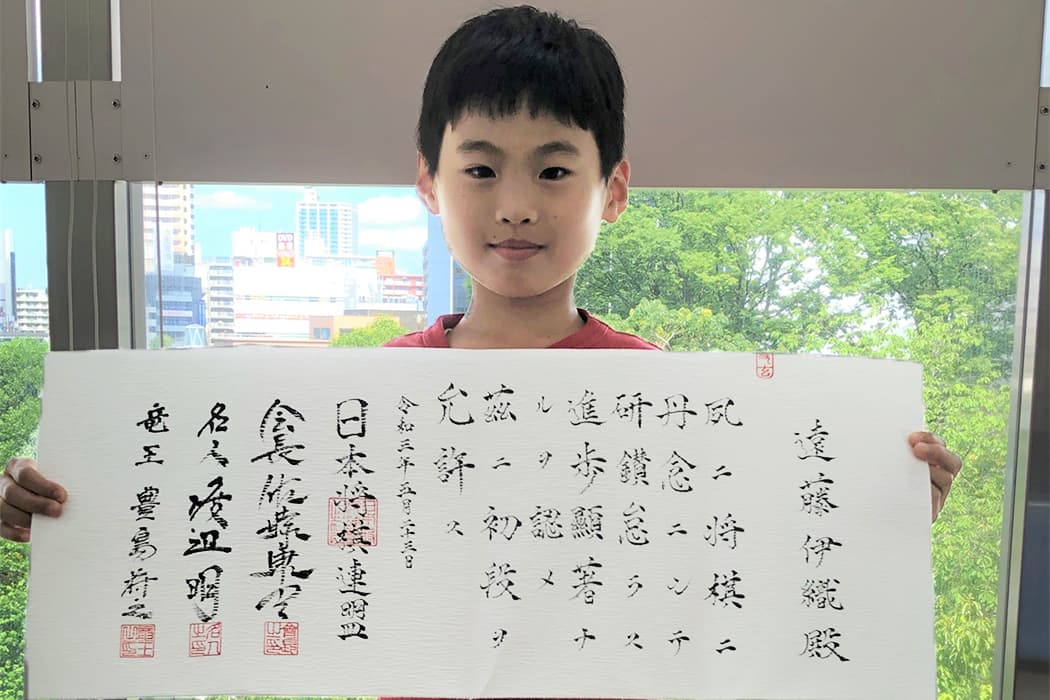 遠藤伊織殿
夙ニ将棋ニ
丹念ニシテ
研鑽怠ラス
進歩顯著ナ
ルヲ認メ
茲ニ初段ヲ
允許ス
令和三年五月二十三日
日本将棋連盟
会長 佐藤康光
名人 渡辺明
竜王 豊島将之
DVD